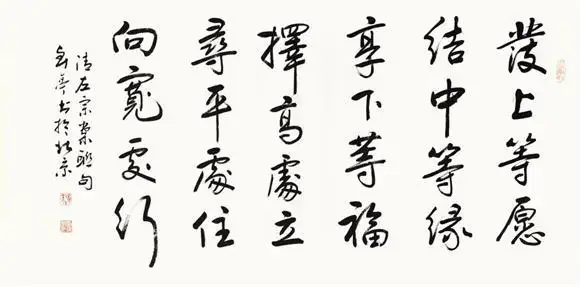 發上等愿
結中等緣
享下等福
擇高處立
尋平處住
向寬處行
清左宗棠聯句
書於北京